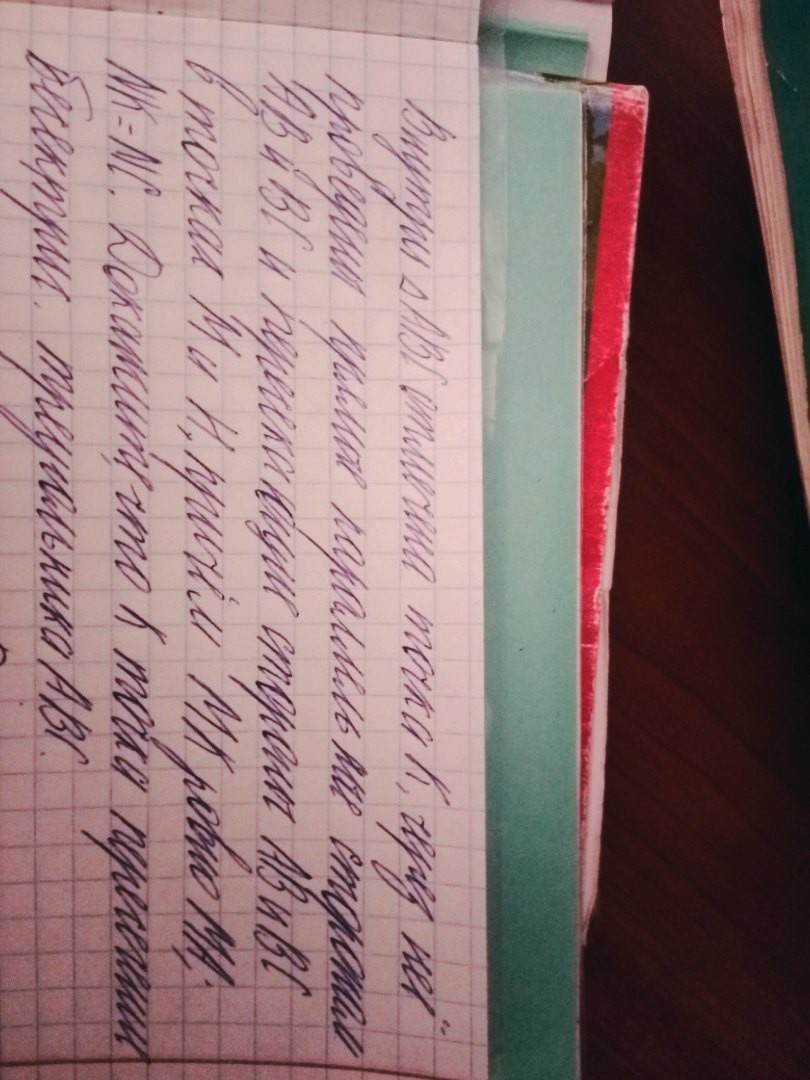 Внутри △ ABC отмечена точка K, через неё
проведены прямые параллельные сторонам
AB и BC и пересекающие стороны AB и BC
в точках M и N, причём MK равно MA,
NK = NC. Докажите, что K точка пресечения
биссектрис. треугольника ABC.